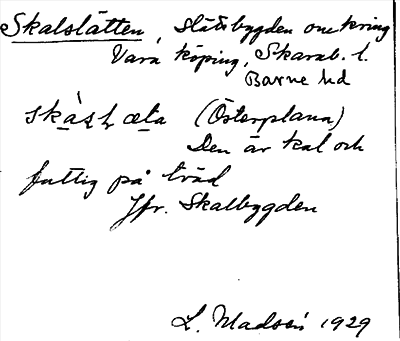 Skalslätten, slättbygden omkring
Vara köping, Skarab. l.
Barne hd
(Österplana)
Den är kal och
fattig på träd
Jfr. Skalbygden
L. Madsén 1929